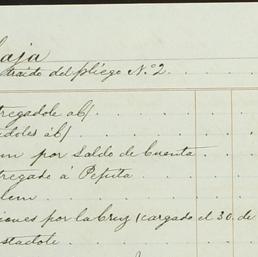 aja
traido del pliego N.º 2
tregadole a b/
adoles a b/
m por Saldo de Cuenta
tregado á Pepita
dem
iones por la Cruz (cargado el 30. de
stadole